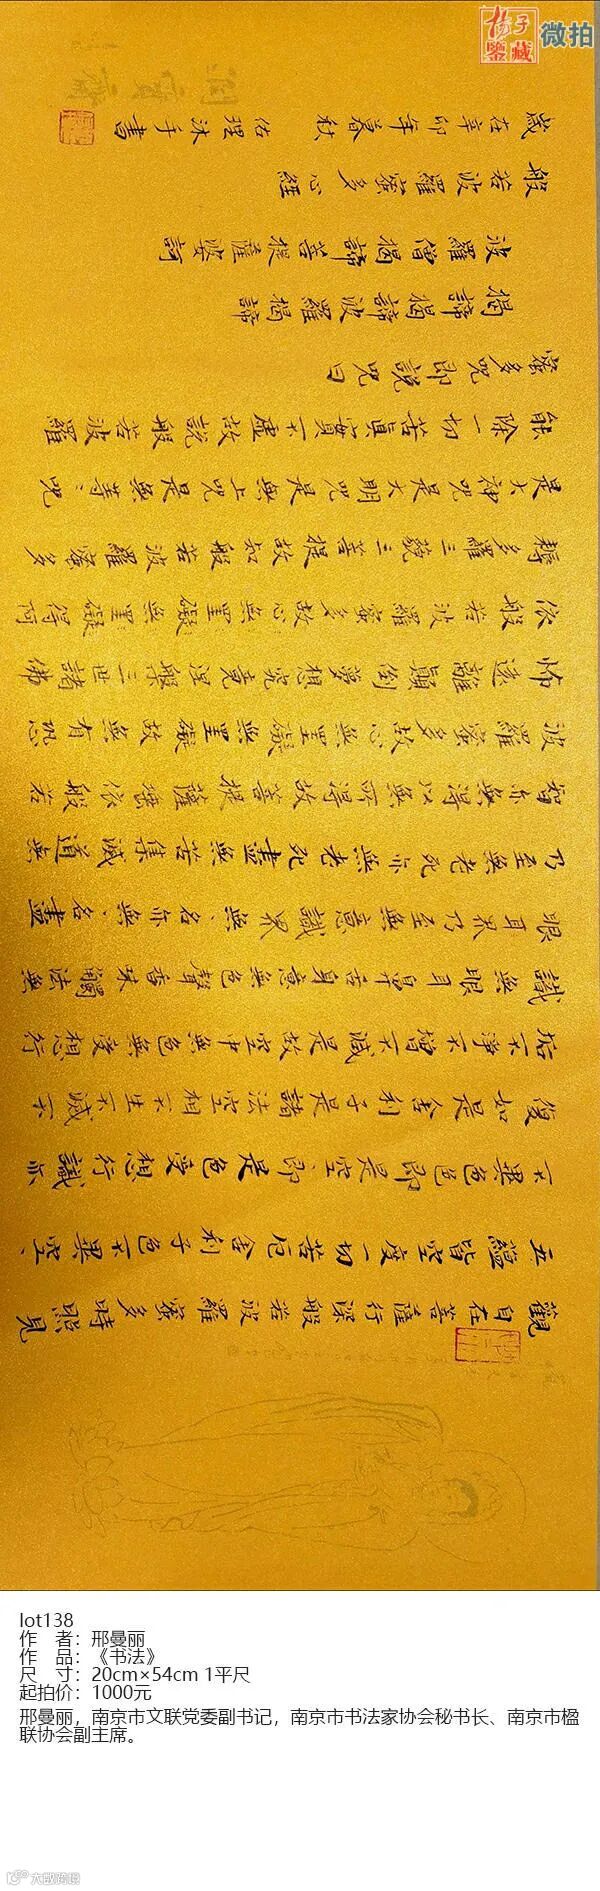 杨子
鉴藏
微拍
觀自在菩薩行深般若波羅蜜多時照見
五蘊皆空度一切苦厄舍利子色不異空、
不異色色即是空、即是色受想行識亦
復如是舍利子是諸法空相不生不滅不
垢不淨不增不減是故空中無色無受想行
識無眼耳鼻舌身意無色聲香味觸法無
眼耳界乃至無意識界無、名亦無、名盡
乃至無老死亦無老死盡無苦集滅道無
智亦無得以無所得故菩提薩埵依般若
波羅蜜多故心無罣礙無罣礙故無有恐
怖遠離顛倒夢想究竟涅槃三世諸佛
依般若波羅蜜多故心無罣礙無罣礙得阿
耨多羅三藐三菩提故知般若波羅蜜多
是大神咒是大明咒是無上咒是無等:咒
能除一切苦真實不虛故說般若波羅
蜜多咒即說咒曰
揭諦揭諦波羅揭諦
波羅僧揭諦菩提薩婆訶
般若波羅蜜多心經
歲在辛卯年暮秋 佑理沐手書
lot138
作 者：邢曼丽
作 品：《书法》
尺 寸：20cm×54cm 1平尺
起拍价：1000元
邢曼丽，南京市文联党委副书记，南京市书法家协会秘书长、南京市楹
联协会副主席。
大数跨境